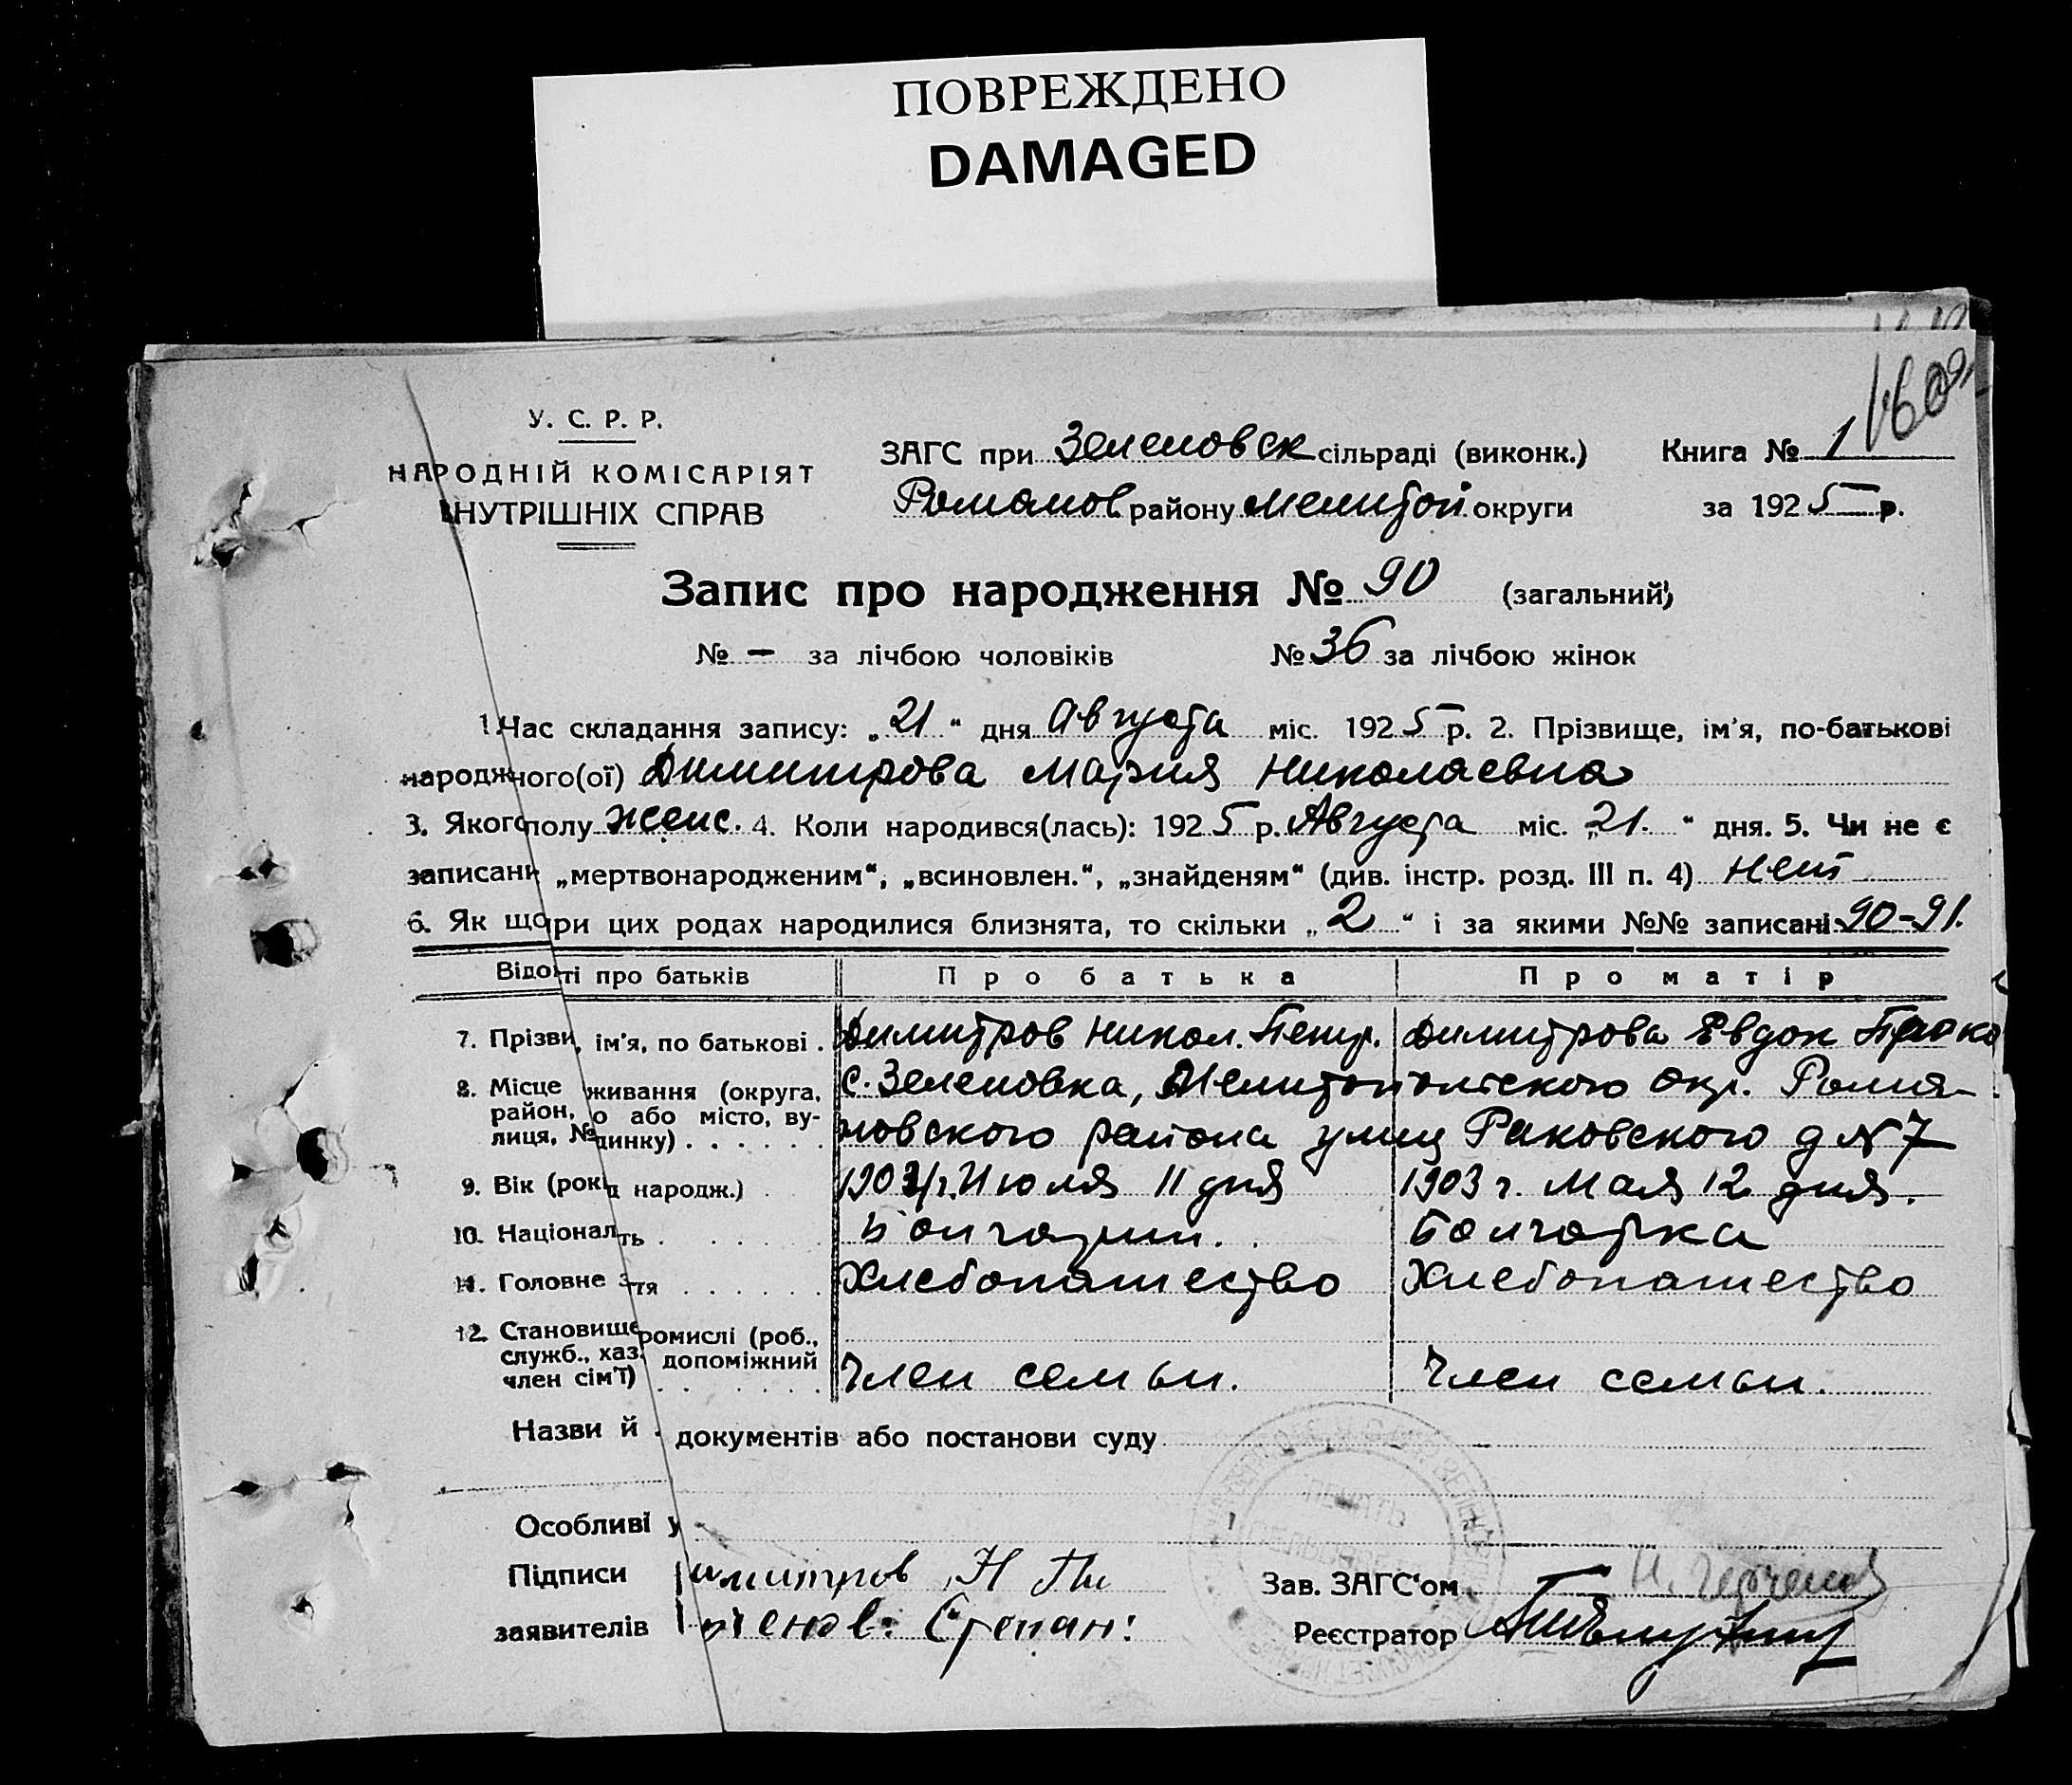 ПОВРЕЖДЕНО
DAMAGED
У. С. Р. Р.
НАРОДНІЙ КОМІСАРІЯТ
ВНУТРІШНІХ СПРАВ
ЗАГС при Зеленовск сільраді (виконк.) Книга № 1
Романов району Мелитой округи за 1925 р.
Запис про народження № 90 (загальний)
№ — за лічбою чоловіків № 36 за лічбою жінок
1. Час складання запису: „21“ дня Августа міс. 1925 р. 2. Прізвище, ім'я, по-батькові
народж ного(ої) Димитрова Мария Николаевна
3. Якого полу женс. 4. Коли народився(лась): 1925 р. Августа міс. „21.“ дня. 5. Чи не є
записани „мертвонародженим“, „всиновлен.“, „знайденям“ (див. інстр. розд. III п. 4) Нет
6. Як що ри цих родах народилися близнята, то скільки „2“ і за якими №№ записані 90-91.
Відо ті про батьків Про батька Про матір
7. Прізви, ім'я, по батькові . Димитров Никол. Петр. Димитрова Евдок Проко
8. Місце живання (округа, район, о або місто, ву- лиця, № динку) . . . . . . с. Зеленовка, Мелитопольского окр. Рома-
новского района улиц Раковского д № 7
9. Вік (рок д народж.) . Июля 11 дня 1903 г. Мая 12 дня.
10. Націонал ть . . . . . Болгарин. Болгарка
11. Головне з тя . . . . . . Хлебопашество Хлебопашество
12. Становище ромислі (роб., служб., хаз. допоміжний член сім'ї) . . . . . . Член семьи. Член семьи.
Назви й документів або постанови суду
Особливі у
Підписи имитров Н Зав. ЗАГС'ом
заявителів ченов: Степан: Реєстратор